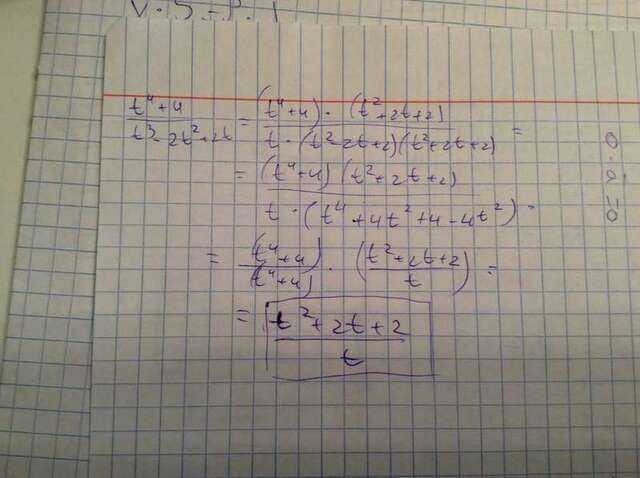 (t⁴+4)/(t³-2t²+2t) = (t⁴+4)·(t²+2t+2)/(t·(t²-2t+2)(t²+2t+2)) =
= (t⁴+4)(t²+2t+2)/(t·(t⁴+4t²+4-4t²)) ·
= (t⁴+4)/(t⁴+4) · ((t²+2t+2)/t) =
= (t²+2t+2)/t